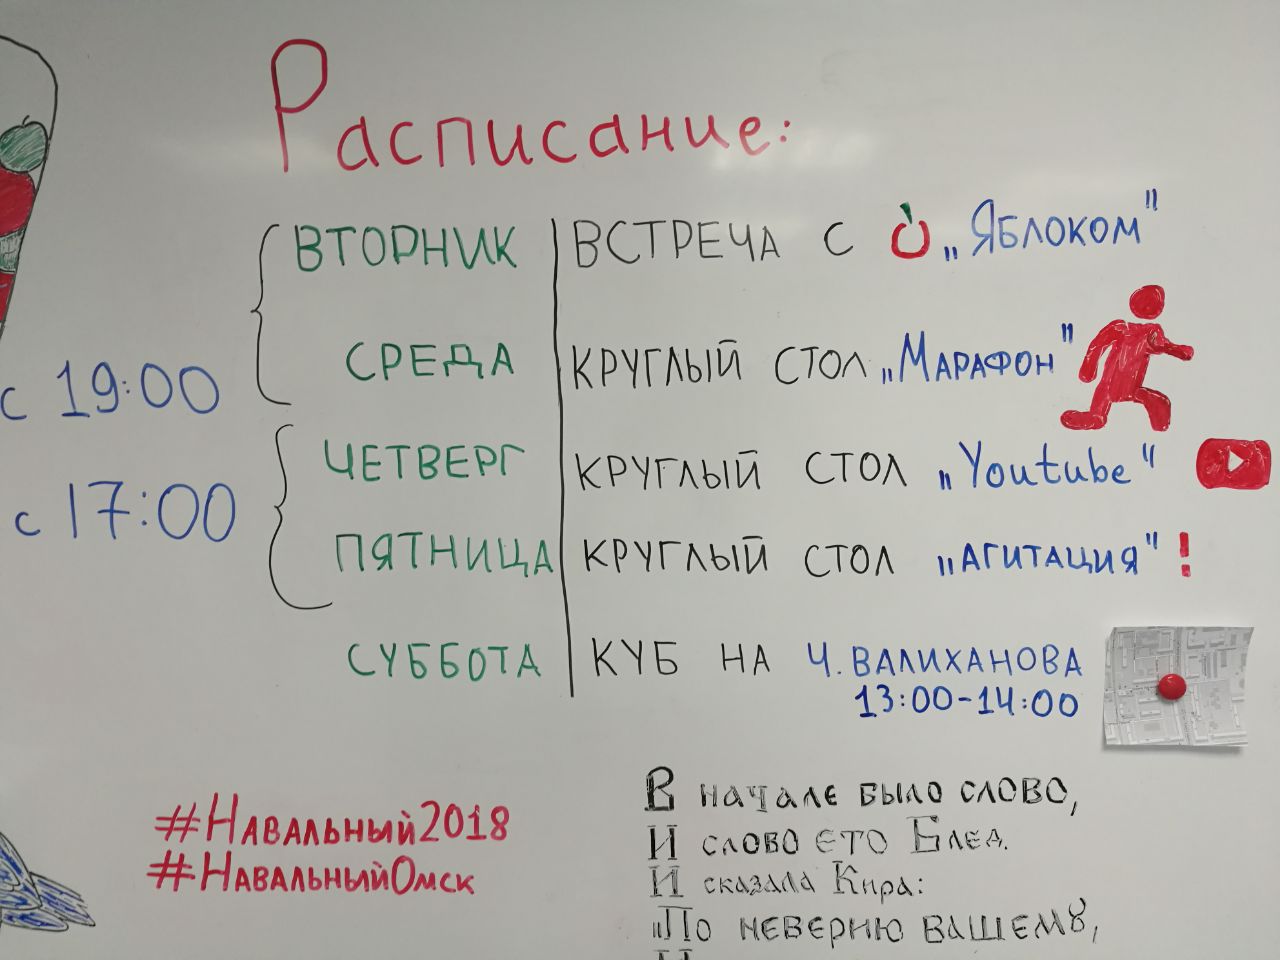 Расписание:
ВТОРНИК ВСТРЕЧА С „ЯБЛОКОМ"
СРЕДА КРУГЛЫЙ СТОЛ „МАРАФОН"
с 19:00
ЧЕТВЕРГ КРУГЛЫЙ СТОЛ „Youtube"
с 17:00
ПЯТНИЦА КРУГЛЫЙ СТОЛ „АГИТАЦИЯ"!
СУББОТА КУБ НА Ч. ВАЛИХАНОВА
13:00-14:00
#НАВАЛЬНЫЙ2018
#НАВАЛЬНЫЙОМСК
В НАЧАЛЕ БЫЛО СЛОВО,
И СЛОВО ЄТО БЛЕД.
И СКАЗАЛА КИРА:
„ПО НЕВЕРИЮ ВАШЕМУ,